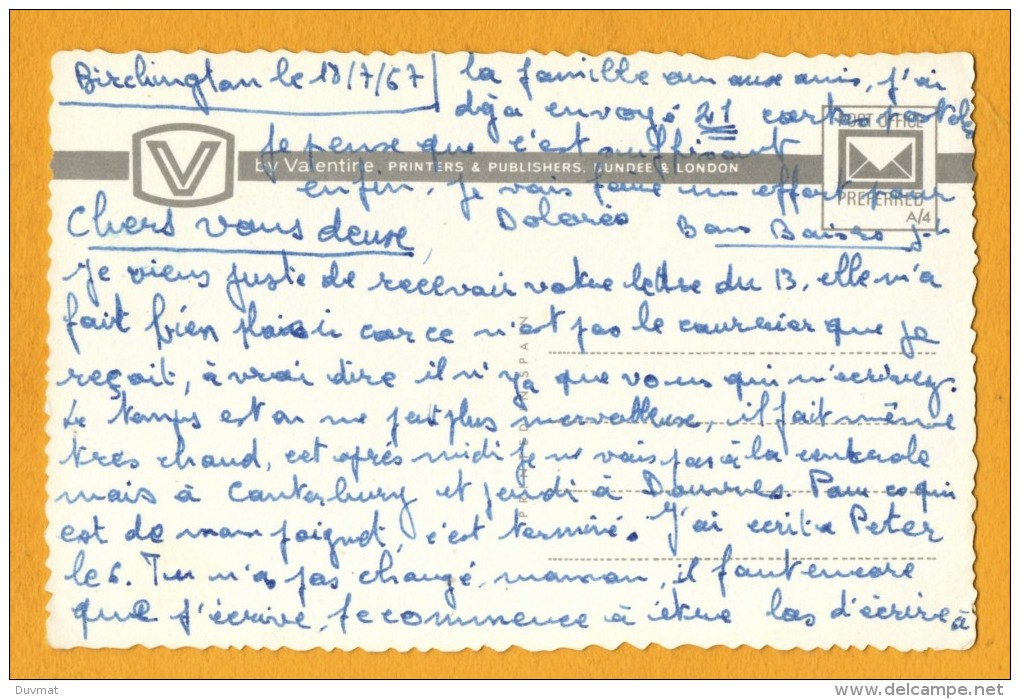 Birchington le 18/7/67
la famille ou aux amis, j'ai
déja envoyé 21 cartes postales
je pense que c'est suffisant
enfin, je vais faire un effort pour
Dolorès Bons Baisers
V
by Valentine, PRINTERS & PUBLISHERS, DUNDEE & LONDON
POST OFFICE
PREFERRED
A/4
Chers vous deux,
Je viens juste de recevoir votre lettre du 13, elle m'a
fait bien plaisir car ce n'est pas le courrier que je
reçoit, à vrai dire il n'y a que vous qui m'écrivez.
Le temps est on ne peut plus merveilleuse, il fait même
très chaud, cet après midi je ne vais pas à la
mais à Canterbury et jeudi à Douvres. Pour ce qui
est de mon poignet, c'est terminé. J'ai écrit à Peter
le 6. Tu n'as pas changé, maman, il faut encore
que j'écrive, je commence à être las d'écrire à
PRINTED IN SPAIN
Duvmat
delcampe.net